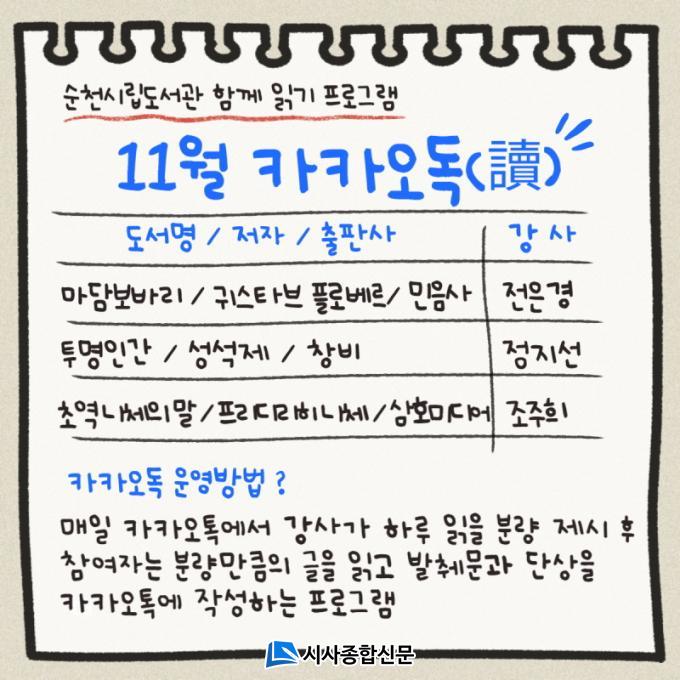 순천시립도서관 함께 읽기 프로그램
11월 카카오독(讀)
도서명 / 저자 / 출판사 강사
마담보바리 / 귀스타브 플로베르/ 민음사 전은경
투명인간 / 성석제 / 창비 정지선
초역 니체의 말/프리드리히 니체/삼호미디어 조주희
카카오독 운영방법 ?
매일 카카오톡에서 강사가 하루 읽을 분량 제시 후
참여자는 분량만큼의 글을 읽고 발췌문과 단상을
카카오톡에 작성하는 프로그램
시사종합신문